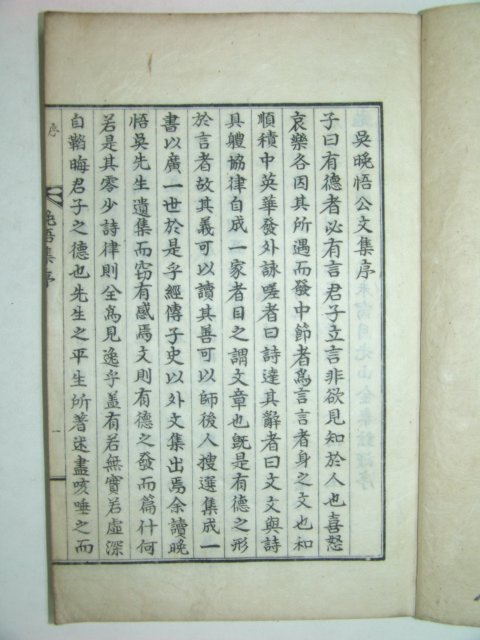 吳晩悟公文集序
子曰有德者必有言君子立言非欲見知於人也喜怒
哀樂各因其所遇而發中節者爲言言者身之文也和
順積中英華發外詠嗟者曰詩達其辭者曰文文與詩
具體協律自成一家者目之謂文章也旣是有德之形
於言者故其義可以讀其善可以師後人搜選集成一
書以廣一世於是乎經傳子史以外文集出焉余讀晩
悟吳先生遺集而窃有感焉文則有德之發而篇什何
若是其零少詩律則全高見逸乎盖有若無實若虛深
自韜晦君子之德也先生之平生所著述盡咳唾之而
晩悟集序
一